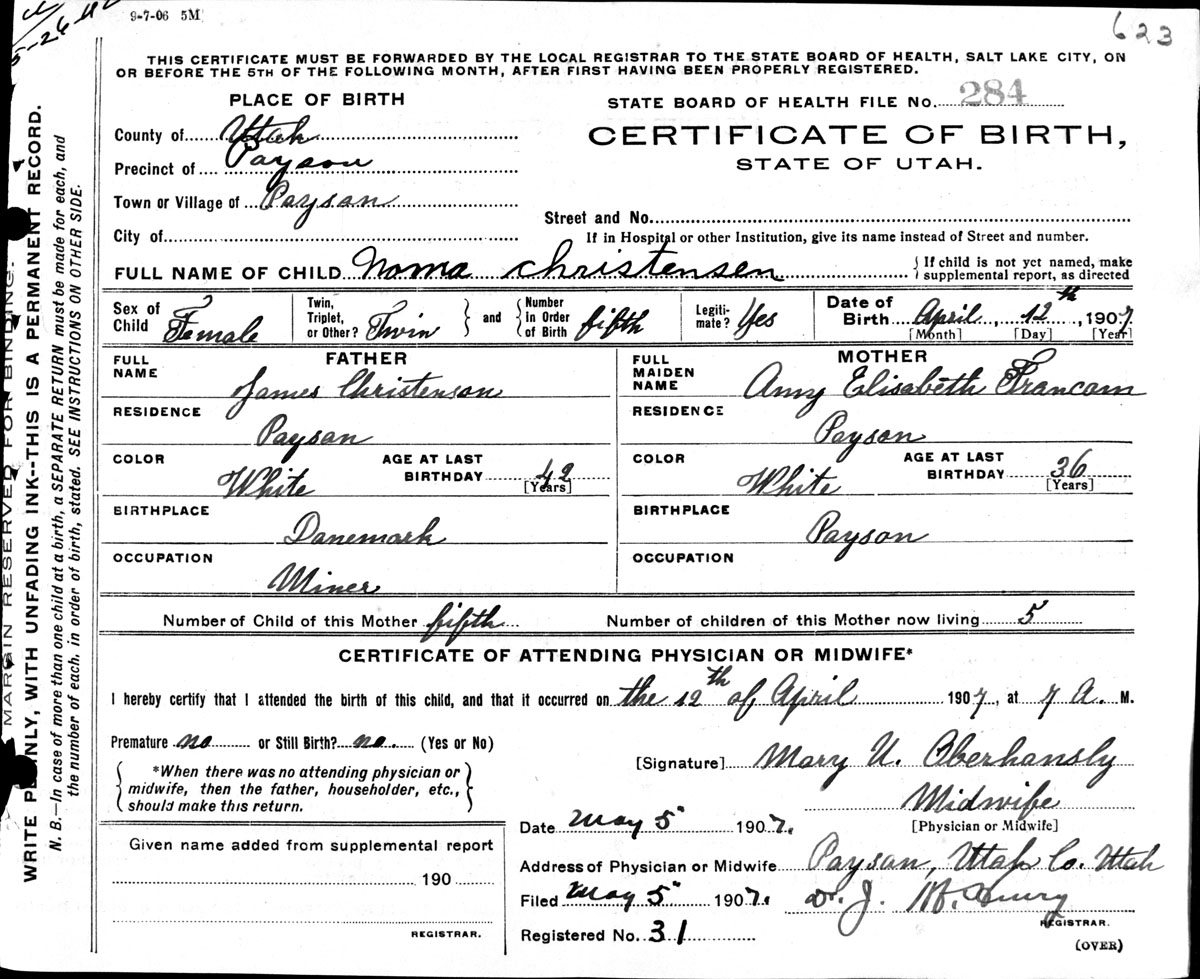 5-26-42
9-7-06 5M
623
THIS CERTIFICATE MUST BE FORWARDED BY THE LOCAL REGISTRAR TO THE STATE BOARD OF HEALTH, SALT LAKE CITY, ON
OR BEFORE THE 5TH OF THE FOLLOWING MONTH, AFTER FIRST HAVING BEEN PROPERLY REGISTERED.
PLACE OF BIRTH
STATE BOARD OF HEALTH FILE No. 284
County of Utah
CERTIFICATE OF BIRTH,
Precinct of Payson
STATE OF UTAH.
Town or Village of Payson
Street and No.
City of
If in Hospital or other Institution, give its name instead of Street and number.
FULL NAME OF CHILD Noma Christensen
{If child is not yet named, make
supplemental report, as directed
Sex of Child Female
Twin, Triplet, or Other? Twin
} and {
Number In Order of Birth fifth
Legiti-mate? Yes
Date of Birth April, 12th, 1907
[Month] [Day] [Year]
FATHER
FULL NAME
James Christenson
RESIDENCE
Payson
COLOR
White
AGE AT LAST BIRTHDAY 42
[Years]
BIRTHPLACE
Danemark
OCCUPATION
Miner
MOTHER
FULL MAIDEN NAME
Amy Elisabeth Francom
RESIDENCE
Payson
COLOR
White
AGE AT LAST BIRTHDAY 36
[Years]
BIRTHPLACE
Payson
OCCUPATION
Number of Child of this Mother fifth
Number of children of this Mother now living 5
CERTIFICATE OF ATTENDING PHYSICIAN OR MIDWIFE*
I hereby certify that I attended the birth of this child, and that it occurred on the 12th of April 1907, at 7 A. M.
Premature no or Still Birth? no. (Yes or No)
[Signature] Mary U. Oberhansly
*When there was no attending physician or
midwife, then the father, householder, etc.,
should make this return.
Midwife
[Physician or Midwife]
Date May 5 1907.
Given name added from supplemental report
190
REGISTRAR.
Address of Physician or Midwife Payson, Utah Co. Utah
Filed May 5 1907. Dr. J.
REGISTRAR.
Registered No. 31
(OVER)
MARGIN RESERVED FOR BINDING.
WRITE PLAINLY, WITH UNFADING INK--THIS IS A PERMANENT RECORD.
N. B.—In case of more than one child at a birth, a SEPARATE RETURN must be made for each, and
the number of each, in order of birth, stated. SEE INSTRUCTIONS ON OTHER SIDE.